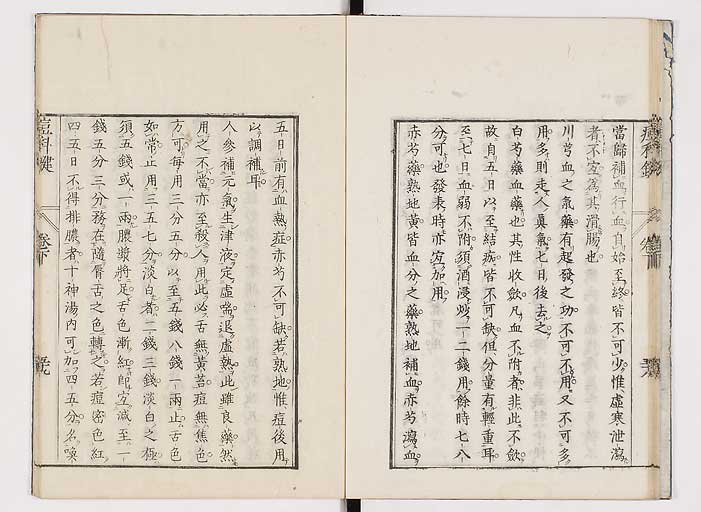 當歸補血行血自始至終皆不可少惟虛寒泄瀉
者不宜為其滑腸也
川芎血之氣藥有起發之功不可不用又不可多
用多則走人真氣七日後去之
白芍藥血藥也其性收斂凡血不附者非此不斂
故自五日以至結痂皆不可缺但分量有輕重耳
至七日血弱不附須酒浸炒一二錢用餘時七八
分可也發表時亦宜加用
赤芍藥熟地黃皆血分之藥熟地補血赤芍瀉血
五日前有血熱症赤芍不可缺若熟地惟痘後用
以調補耳
人參補元氣生津液定虛喘退虛熱此雖良藥然
用之不當亦至殺人用此必舌無黃苔痘無焦色
方可每用三分五分以至五錢八錢一兩止舌色
如常止用三五七分淡白者二錢三錢淡白之極
須五錢或一兩膿漿將足舌色漸紅即宜減至一
錢五分三分務在隨唇舌之色轉之若痘密色紅
四五日不得排膿者十神湯內可加四五分名喚
痘科鍵
卷下